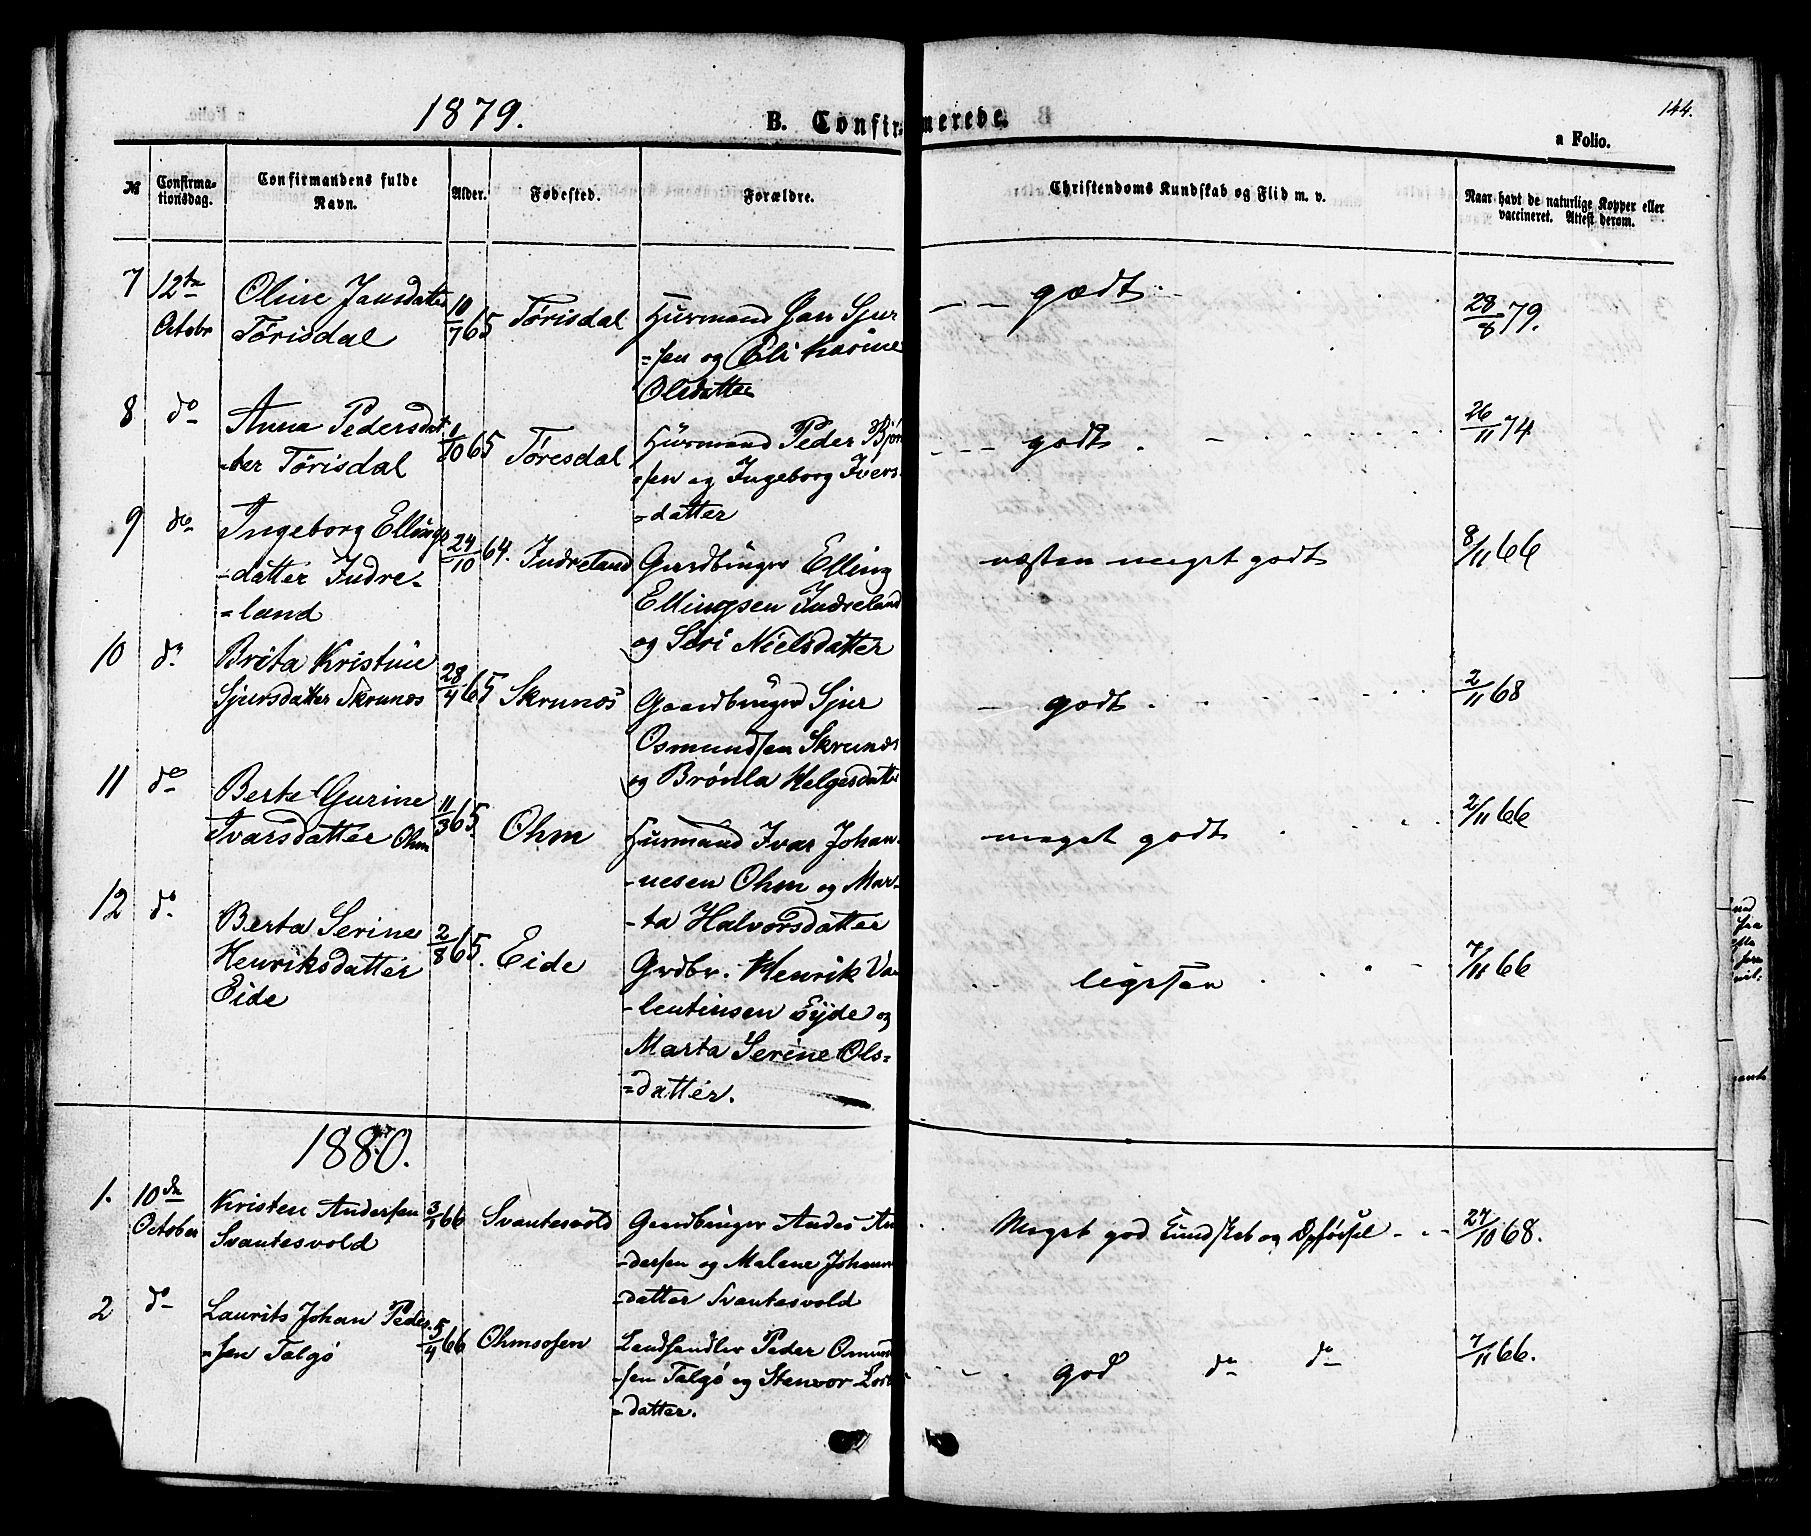 1879.
B. Confirmerede.
144.
a Folio.
№ Confirma-tionsdag. Confirmandens fulde Navn. Alder. Fødested. Forældre. Christendoms Kundskab og Flid m. v. Naar havt de naturlige Kopper eller vaccineret. Attest derom.
7 12te Octobr
Oline Jansdatter
Tørisdal
10/7 65 Tørisdal
Huusmand Jan Sjur
-sen og Eli Karine
Olsdatter
godt
28/8 79.
8 do
Anna Pedersdat
-ter Tørisdal
1/10 65 Töresdal
Huusmand Peder Bjørn
-sen og Ingeborg Ivers
-datter
godt
26/11 74
9 do
Ingeborg Ellings
-datter Indre-
-land
24/10 64. Indreland
Gardbruger Elling
Ellingsen Indreland
og Seri Nielsdatter
næsten meget godt
8/11 66
10 do
Brita Kristine
Sjursdatter Skrunes
28/4 65 Skrunes
Gaardbruger Sjur
Osmundsen Skrunes
og Brønla Helgesdatter
godt
2/11 68
11 do
Berte Gurine
Ivarsdatter Ohm
11/3 65. Ohm
Huusmand Ivar Johan-
-nesen Ohm og Mar-
-ta Halvorsdatter
meget godt
2/11 66
12 do
Berta Serine
Henriksdatter
Eide
2/8 65. Eide
Grdbr. Henrik Va
-lentinsen Eyde og
Marta Serine Ols=
=datter.
ligesaa
7/11 66
1880.
1. 10de October
Kristen Andersen
Svantesvold
3/1 66 Svantesvold
Gaardbruger Andes An
-dersen og Malene Johann
-datter Svantesvold
Meget god Kundskab og Opførsel
27/10 68.
2 do
Laurits Johan Peder
-sen Talgø
5/4 66 Ohmsosen
Landhandler Peder Omund
-sen Talgø og Stenvor
-datter.
god do do
7/11 66.